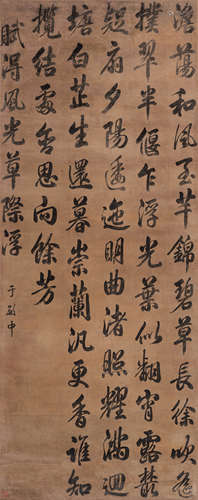 澹蕩和風至芊綿碧草長徐吹遙
撲翠半偃乍浮光葉似翻宵露叢
疑扇夕陽逶迤明曲渚照耀滿迴
塘白芷生還暮崇蘭汎更香誰知
攬結處含思向餘芳
賦得風光草際浮
于敏中